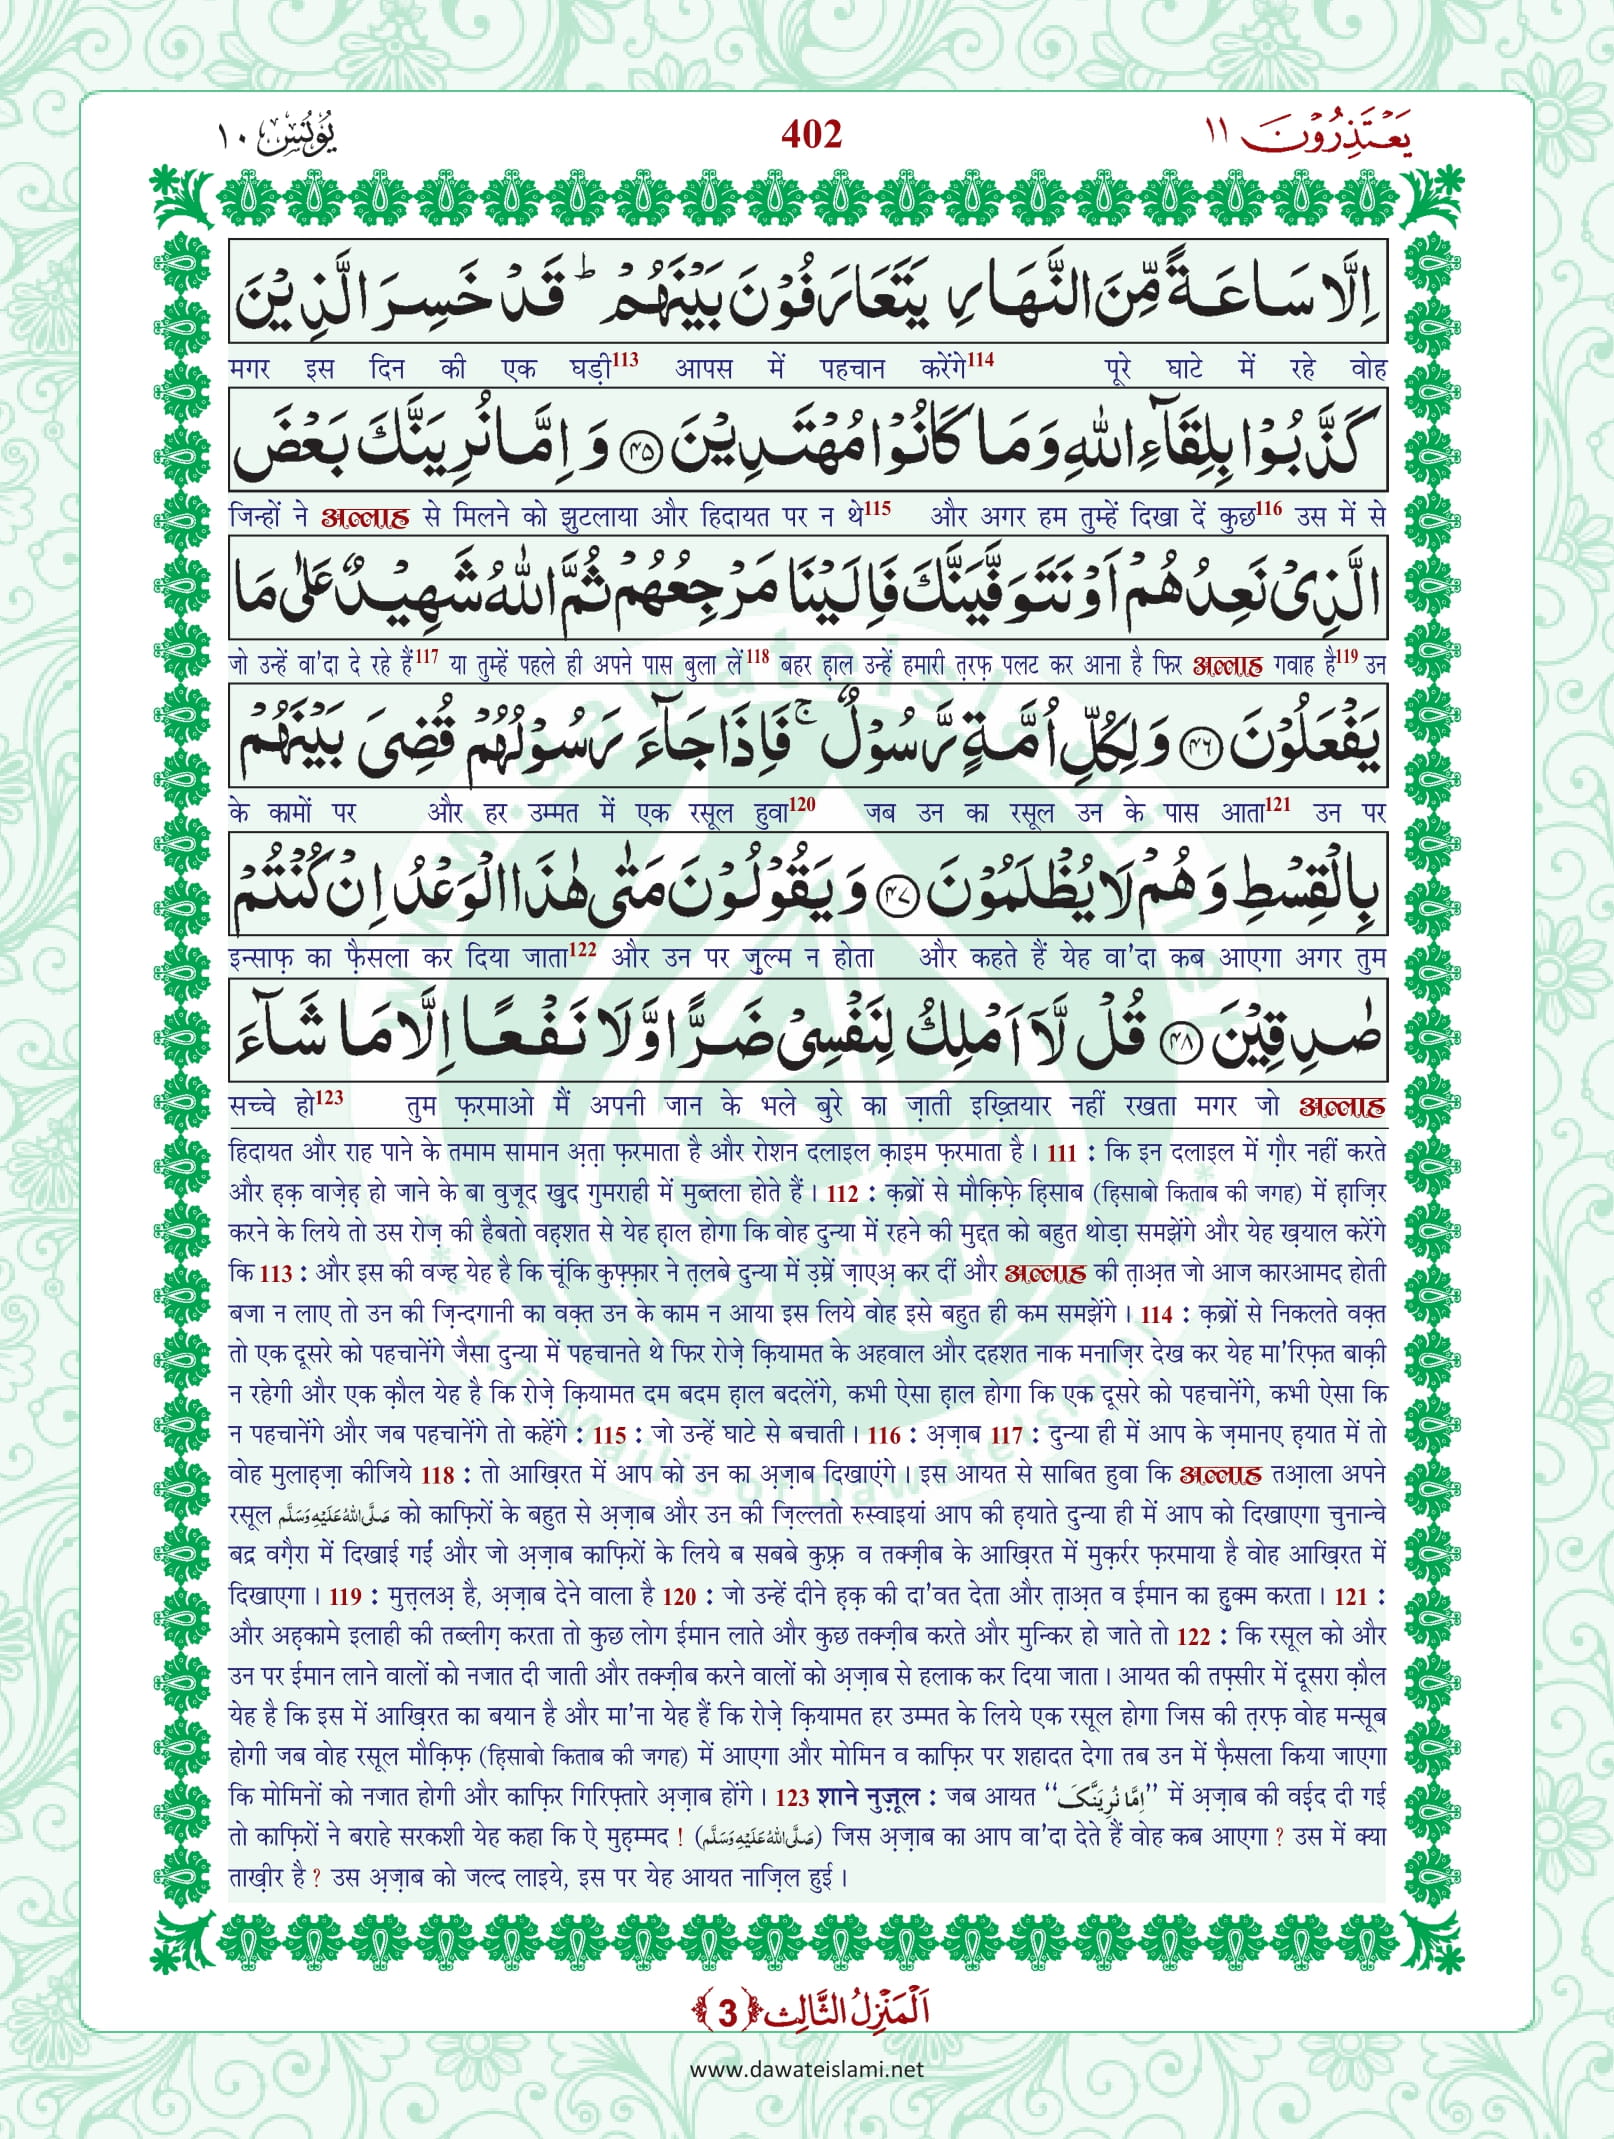 يَعْتَذِرُوْنَ ١١
402
يُوْنُس ١٠
اِلَّا سَاعَةً مِّنَ النَّهَارِ يَتَعَارَفُوْنَ بَيْنَهُمْ ؕ قَدْ خَسِرَ الَّذِيْنَ
मगर इस दिन की एक घड़ी113 आपस में पहचान करेंगे114 पूरे घाटे में रहे वोह
كَذَّبُوْا بِلِقَآءِ اللّٰهِ وَمَا كَانُوْا مُهْتَدِيْنَ ﴿۴۵﴾ وَ اِمَّا نُرِيَنَّكَ بَعْضَ
जिन्हों ने अल्लाह से मिलने को झुटलाया और हिदायत पर न थे115 और अगर हम तुम्हें दिखा दें कुछ116 उस में से
الَّذِيْ نَعِدُهُمْ اَوْ نَتَوَفَّيَنَّكَ فَاِلَيْنَا مَرْجِعُهُمْ ثُمَّ اللّٰهُ شَهِيْدٌ عَلٰى مَا
जो उन्हें वा'दा दे रहे हैं117 या तुम्हें पहले ही अपने पास बुला लें118 बहर ह़ाल उन्हें हमारी त़रफ़ पलट कर आना है फिर अल्लाह गवाह है119 उन
يَفْعَلُوْنَ ﴿۴۶﴾ وَ لِكُلِّ اُمَّةٍ رَّسُوْلٌ ۚ فَاِذَا جَآءَ رَسُوْلُهُمْ قُضِيَ بَيْنَهُمْ
के कामों पर और हर उम्मत में एक रसूल हुवा120 जब उन का रसूल उन के पास आता121 उन पर
بِالْقِسْطِ وَ هُمْ لَا يُظْلَمُوْنَ ﴿۴۷﴾ وَ يَقُوْلُوْنَ مَتٰى هٰذَا الْوَعْدُ اِنْ كُنْتُمْ
इन्साफ़ का फ़ैसला कर दिया जाता122 और उन पर ज़ुल्म न होता और कहते हैं येह वा'दा कब आएगा अगर तुम
صٰدِقِيْنَ ﴿۴۸﴾ قُلْ لَّاۤ اَمْلِكُ لِنَفْسِيْ ضَرًّا وَّ لَا نَفْعًا اِلَّا مَا شَآءَ
सच्चे हो123 तुम फ़रमाओ मैं अपनी जान के भले बुरे का ज़ाती इख़्तियार नहीं रखता मगर जो अल्लाह
हिदायत और राह पाने के तमाम सामान अ़त़ा फ़रमाता है और रोशन दलाइल क़ाइम फ़रमाता है। 111 : कि इन दलाइल में ग़ौर नहीं करते
और ह़क़ वाज़ेह़ हो जाने के बा वुजूद खुद गुमराही में मुब्तला होते हैं। 112 : क़ब्रों से मौक़िफ़े ह़िसाब (ह़िसाबो किताब की जगह) में ह़ाज़िर
करने के लिये तो उस रोज़ की हैबतो वह़शत से येह ह़ाल होगा कि वोह दुन्या में रहने की मुद्दत को बहुत थोड़ा समझेंगे और येह ख़याल करेंगे
कि 113 : और इस की वज्ह येह है कि चूंकि कुफ़्फ़ार ने त़लबे दुन्या में उ़म्रें ज़ाएअ़ कर दीं और अल्लाह की त़ाअ़त जो आज कारआमद होती
बजा न लाए तो उन की ज़िन्दगानी का वक़्त उन के काम न आया इस लिये वोह इसे बहुत ही कम समझेंगे। 114 : क़ब्रों से निकलते वक़्त
तो एक दूसरे को पहचानेंगे जैसा दुन्या में पहचानते थे फिर रोज़े क़ियामत के अहवाल और दहशत नाक मनाज़िर देख कर येह मा'रिफ़त बाक़ी
न रहेगी और एक क़ौल येह है कि रोज़े क़ियामत दम बदम ह़ाल बदलेंगे, कभी ऐसा ह़ाल होगा कि एक दूसरे को पहचानेंगे, कभी ऐसा कि
न पहचानेंगे और जब पहचानेंगे तो कहेंगे : 115 : जो उन्हें घाटे से बचाती। 116 : अ़ज़ाब 117 : दुन्या ही में आप के ज़मानए ह़यात में तो
वोह मुलाह़ज़ा कीजिये 118 : तो आख़िरत में आप को उन का अ़ज़ाब दिखाएंगे। इस आयत से साबित हुवा कि अल्लाह तआ़ला अपने
रसूल صَلَّى اللهُ عَلَيْهِ وَسَلَّم को काफ़िरों के बहुत से अ़ज़ाब और उन की ज़िल्लतो रुस्वाइयां आप की ह़याते दुन्या ही में आप को दिखाएगा चुनान्चे
बद्र वग़ैरा में दिखाई गईं और जो अ़ज़ाब काफ़िरों के लिये ब सबबे कुफ़्र व तक्ज़ीब के आख़िरत में मुक़र्रर फ़रमाया है वोह आख़िरत में
दिखाएगा। 119 : मुत़्त़लअ़ है, अ़ज़ाब देने वाला है 120 : जो उन्हें दीने ह़क़ की दा'वत देता और त़ाअ़त व ईमान का हुक्म करता। 121 :
और अह़कामे इलाही की तब्लीग़ करता तो कुछ लोग ईमान लाते और कुछ तक्ज़ीब करते और मुन्किर हो जाते तो 122 : कि रसूल को और
उन पर ईमान लाने वालों को नजात दी जाती और तक्ज़ीब करने वालों को अ़ज़ाब से हलाक कर दिया जाता। आयत की तफ़्सीर में दूसरा क़ौल
येह है कि इस में आख़िरत का बयान है और मा'ना येह हैं कि रोज़े क़ियामत हर उम्मत के लिये एक रसूल होगा जिस की त़रफ़ वोह मन्सूब
होगी जब वोह रसूल मौक़िफ़ (ह़िसाबो किताब की जगह) में आएगा और मोमिन व काफ़िर पर शहादत देगा तब उन में फ़ैसला किया जाएगा
कि मोमिनों को नजात होगी और काफ़िर गिरिफ़्तारे अ़ज़ाब होंगे। 123 शाने नुज़ूल : जब आयत “اِمَّا نُرِيَنَّكَ” में अ़ज़ाब की वई़द दी गई
तो काफ़िरों ने बराहे सरकशी येह कहा कि ऐ मुह़म्मद ! (صَلَّى اللهُ عَلَيْهِ وَسَلَّم) जिस अ़ज़ाब का आप वा'दा देते हैं वोह कब आएगा ? उस में क्या
ताख़ीर है ? उस अ़ज़ाब को जल्द लाइये, इस पर येह आयत नाज़िल हुई।
اَلْمَنْزِلُ الثَّالِث ﴿3﴾
www.dawateislami.net